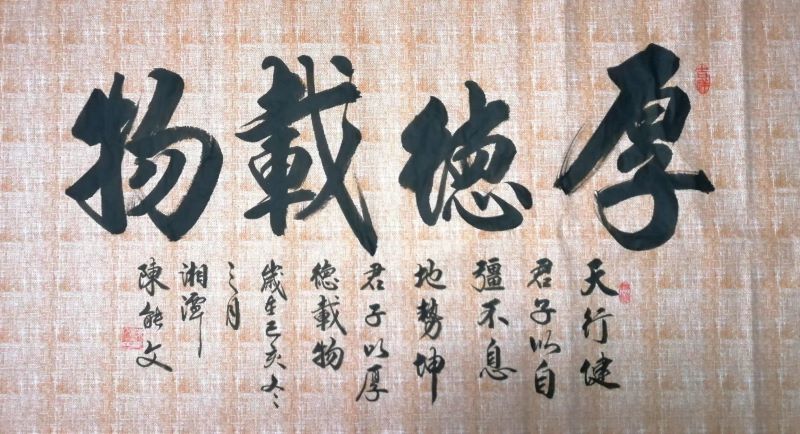 厚德載物
天行健
君子以自
彊不息
地勢坤
君子以厚
德載物
歲在己亥冬
之月
湘潭
陳能文